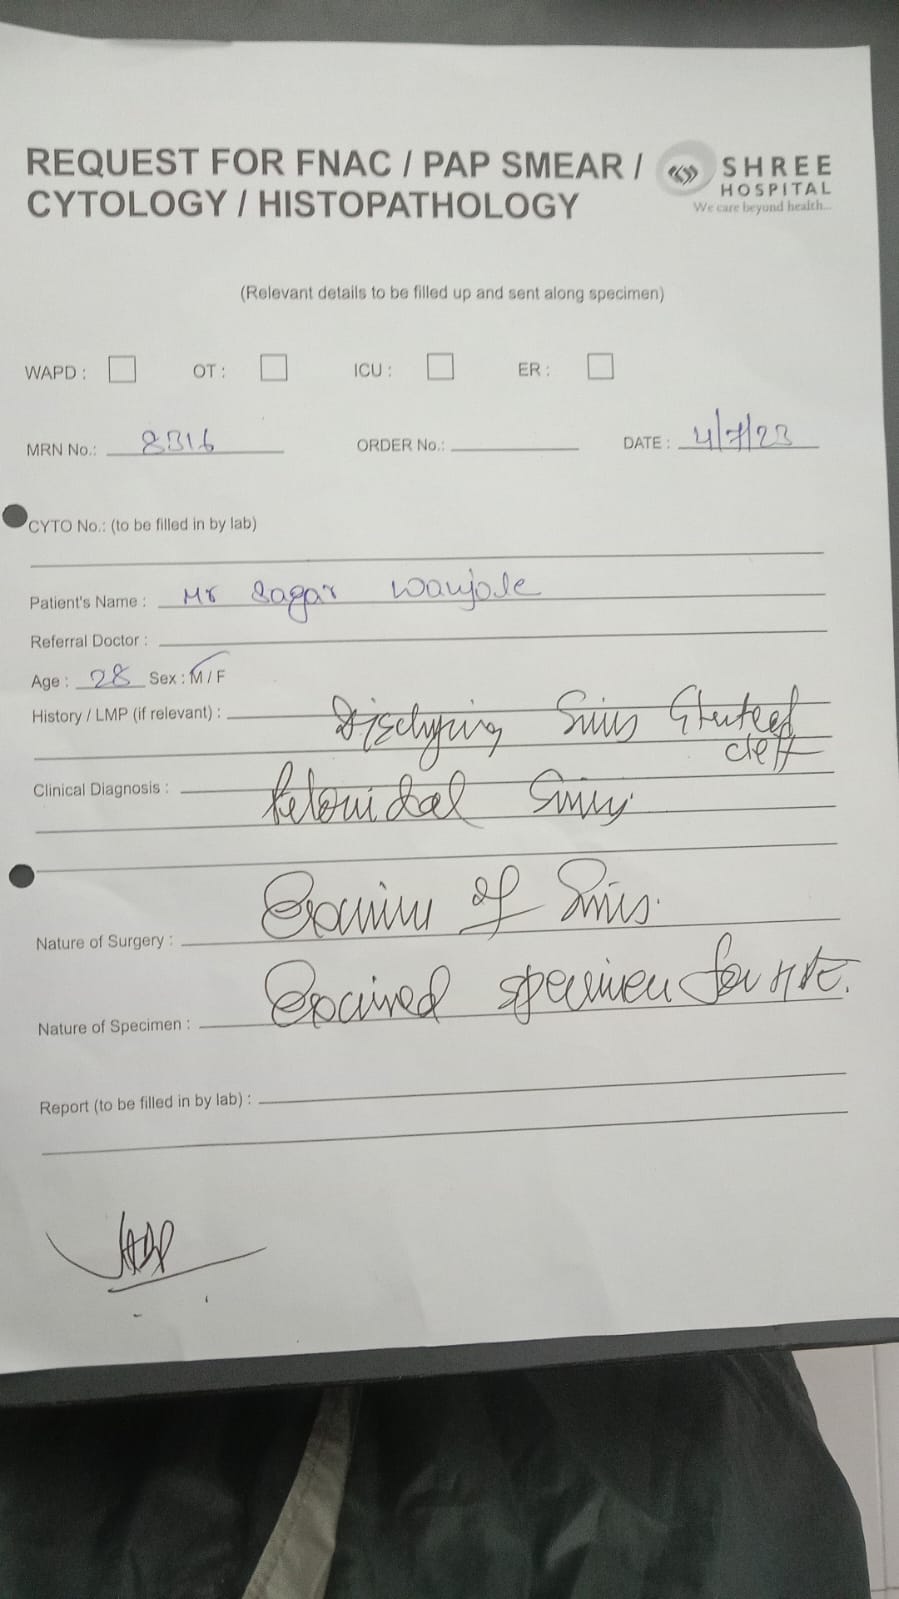 REQUEST FOR FNAC / PAP SMEAR /
CYTOLOGY / HISTOPATHOLOGY
SHREE
HOSPITAL
We care beyond health...
(Relevant details to be filled up and sent along specimen)
WAPD : OT : ICU : ER :
MRN No.: 8316 ORDER No.: DATE : 4/7/23
CYTO No.: (to be filled in by lab)
Patient's Name : Mr Sagar
Referral Doctor :
Age : 28 Sex : M / F
History / LMP (if relevant) : Sinus
cleft
Clinical Diagnosis : Sinus
Nature of Surgery : of Sinus.
Nature of Specimen : specimen for
Report (to be filled in by lab) :